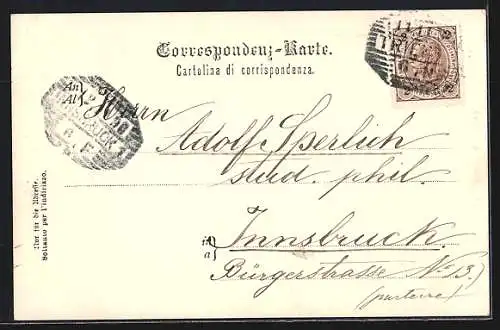 Correspondenz-Karte.
Cartolina di corrispondenza.
An
Al
Herrn
Adolf Sperlich
stud. phil.
in
a
Innsbruck.
Bürgerstrasse No 13.
(parterre)
Nur für die Adresse.
Soltanto per l'indirizzo.